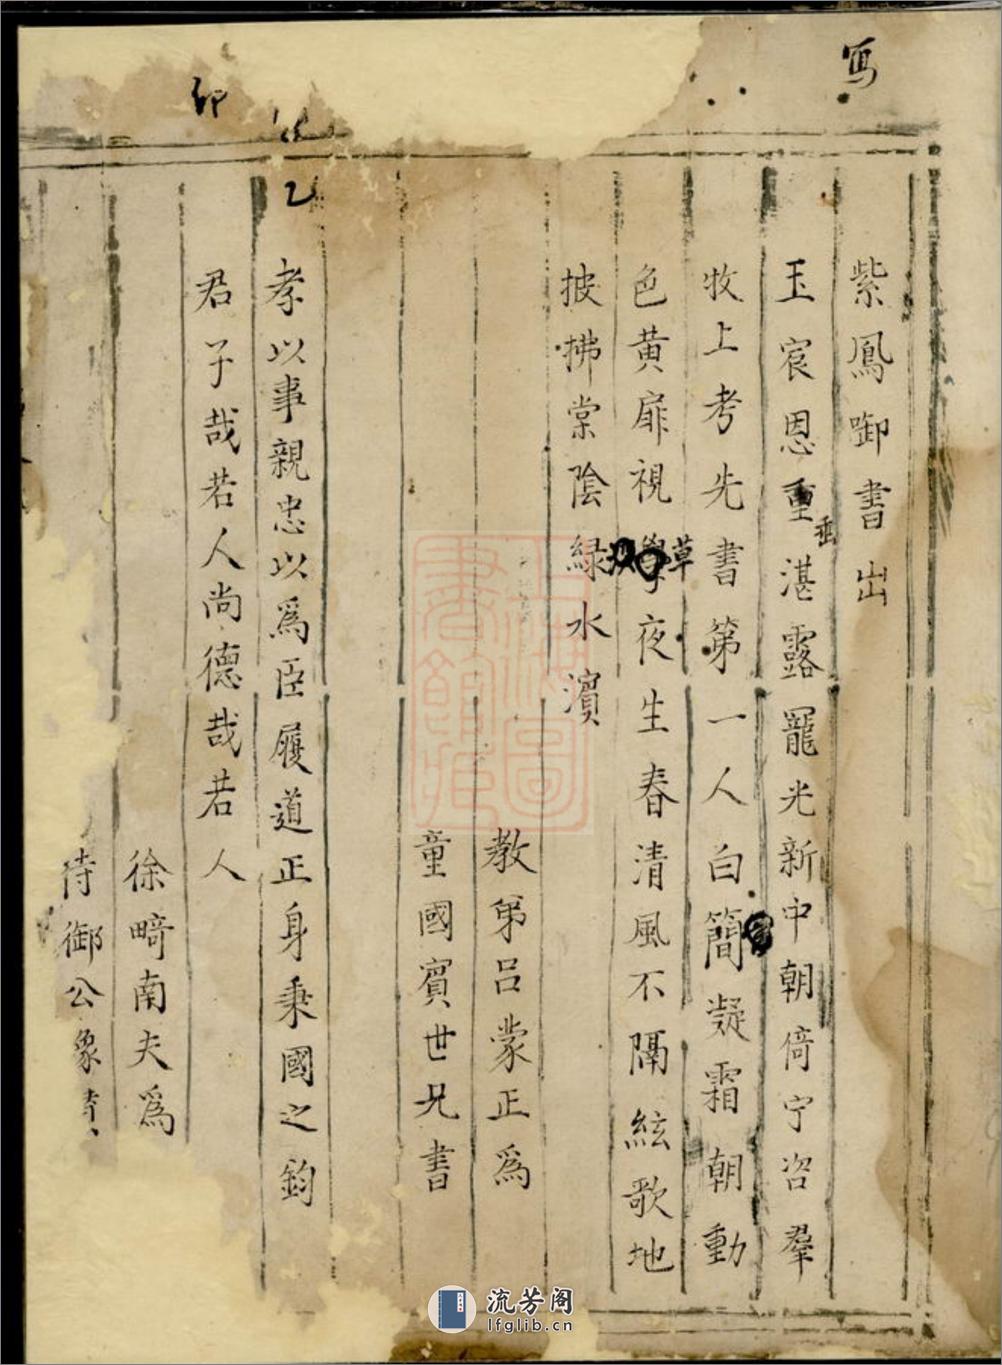 寫
紫鳳啣書出
玉宸恩重垂湛露寵光新中朝倚宁咨羣
牧上考先書第一人白簡凝霜朝動
色黃扉視草夜生春清風不隔絃歌地
披拂棠陰緑水濱
教弟呂蒙正爲
童國賓世兄書
乙
孝以事親忠以爲臣履道正身秉國之鈞
卯
君子哉若人尚德哉若人
徐畸南夫爲
侍御公象贊
上海圖書館藏
流芳阁
lfglib.cn